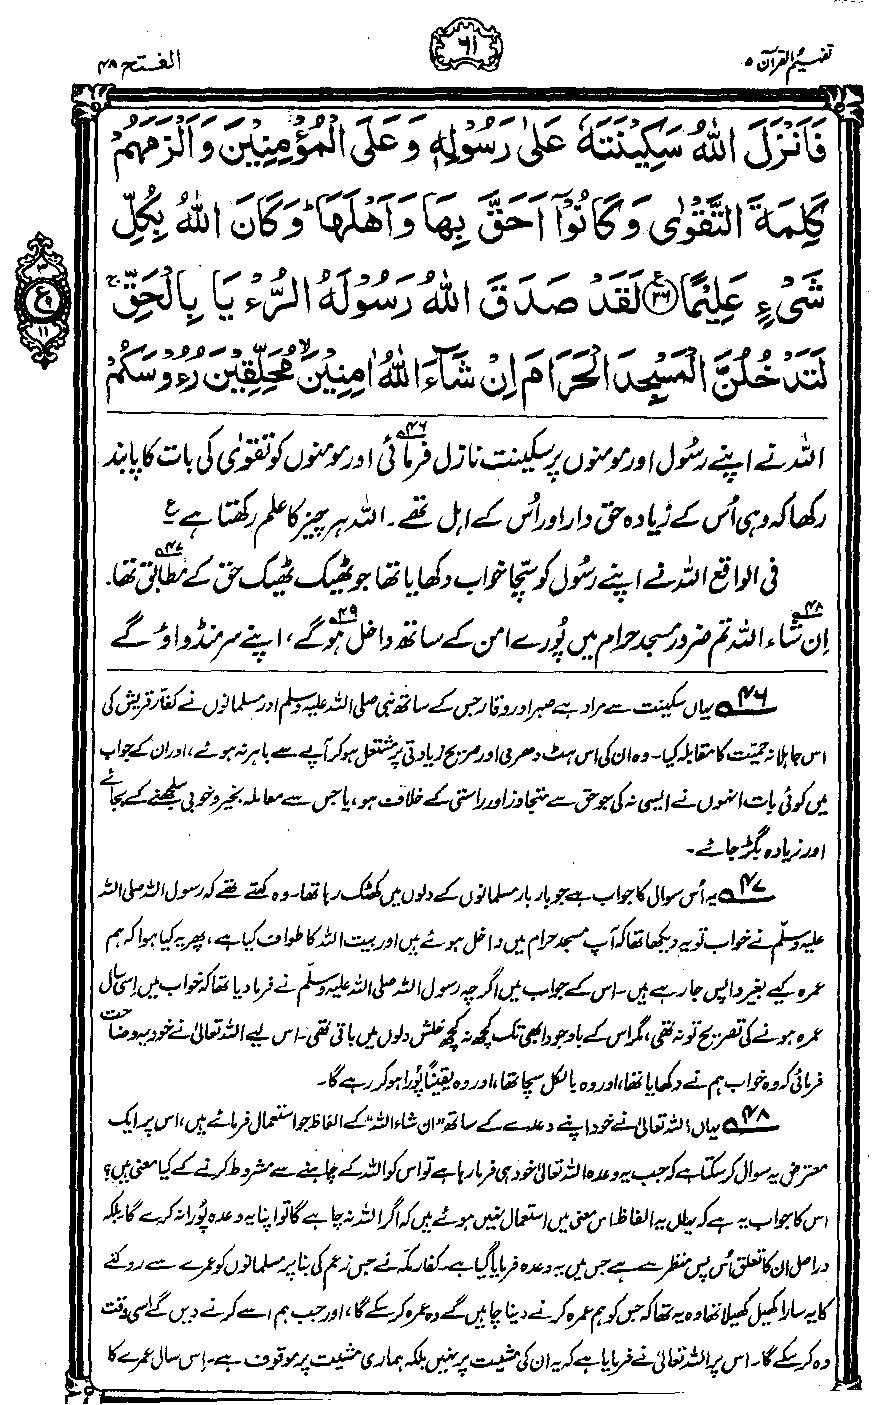 تفہیم القرآن ۵
۶۱
الفتح ۴۸
فَاَنْزَلَ اللّٰهُ سَكِيْنَتَهٗ عَلٰى رَسُوْلِهٖ وَعَلَى الْمُؤْمِنِيْنَ وَاَلْزَمَهُمْ
كَلِمَةَ التَّقْوٰى وَكَانُوْٓا اَحَقَّ بِهَا وَاَهْلَهَا ؕ وَكَانَ اللّٰهُ بِكُلِّ
شَيْءٍ عَلِيْمًا ﴿۲۶﴾ لَقَدْ صَدَقَ اللّٰهُ رَسُوْلَهُ الرُّءْيَا بِالْحَقِّ ۚ
لَتَدْخُلُنَّ الْمَسْجِدَ الْحَرَامَ اِنْ شَآءَ اللّٰهُ اٰمِنِيْنَ ۙ مُحَلِّقِيْنَ رُءُوْسَكُمْ
۳
ع
۱۱
اللہ نے اپنے رسُول اور مومنوں پر سکینت نازل فرمائی ۴۶؎ اور مومنوں کو تقوٰی کی بات کا پابند
رکھا کہ وہی اُس کے زیادہ حق دار اور اُس کے اہل تھے۔ اللہ ہر چیز کا علم رکھتا ہے ع
فی الواقع اللہ نے اپنے رسُول کو سچّا خواب دکھایا تھا جو ٹھیک ٹھیک حق کے مطابق تھا۔ ۴۷؎
اِن شاء اللہ ۴۸؎ تم ضرور مسجدِ حرام میں پُورے امن کے ساتھ داخل ہو گے ۴۹؎، اپنے سر منڈواؤ گے
۴۶؎ یہاں سکینت سے مراد ہے صبر اور وقار جس کے ساتھ نبی صلی اللہ علیہ وسلم اور مسلمانوں نے کفّارِ قریش کی
اس جاہلانہ حمیّت کا مقابلہ کیا۔ وہ ان کی اس ہٹ دھرمی اور صریح زیادتی پر مشتعل ہو کر آپے سے باہر نہ ہوئے، اور ان کے جواب
میں کوئی بات انہوں نے ایسی نہ کی جو حق سے متجاوز اور راستی کے خلاف ہو، یا جس سے معاملہ بخیر و خوبی سلجھنے کے بجائے
اور زیادہ بگڑ جائے۔
۴۷؎ یہ اُس سوال کا جواب ہے جو بار بار مسلمانوں کے دلوں میں کھٹک رہا تھا۔ وہ کہتے تھے کہ رسول اللہ صلی اللہ
علیہ وسلّم نے خواب تو یہ دیکھا تھا کہ آپ مسجد حرام میں داخل ہوئے ہیں اور بیت اللہ کا طواف کیا ہے، پھر یہ کیا ہوا کہ ہم
عمرہ کیے بغیر واپس جا رہے ہیں۔ اس کے جواب میں اگرچہ رسول اللہ صلی اللہ علیہ وسلّم نے فرما دیا تھا کہ خواب میں اِسی سال
عمرہ ہونے کی تصریح تو نہ تھی، مگر اس کے باوجود ابھی تک کچھ نہ کچھ خلش دلوں میں باقی تھی۔ اس لیے اللہ تعالیٰ نے خود یہ وضاحت
فرمائی کہ وہ خواب ہم نے دکھایا تھا، اور وہ بالکل سچّا تھا، اور وہ یقیناً پُورا ہو کر رہے گا۔
۴۸؎ یہاں اللہ تعالیٰ نے خود اپنے وعدے کے ساتھ "ان شاء اللہ" کے الفاظ جو استعمال فرمائے ہیں، اس پر ایک
معترض یہ سوال کر سکتا ہے کہ جب یہ وعدہ اللہ تعالیٰ خود ہی فرما رہا ہے تو اس کو اللہ کے چاہنے سے مشروط کرنے کے کیا معنی ہیں؟
اس کا جواب یہ ہے کہ یہاں یہ الفاظ اس معنی میں استعمال نہیں ہوئے ہیں کہ اگر اللہ نہ چاہے گا تو اپنا یہ وعدہ پُورا نہ کرے گا بلکہ
دراصل ان کا تعلق اُس پس منظر سے ہے جس میں یہ وعدہ فرمایا گیا ہے۔ کفارِ مکّہ نے جس زعم کی بنا پر مسلمانوں کو عمرے سے روکنے
کا یہ سارا کھیل کھیلا تھا وہ یہ تھا کہ جس کو ہم عمرہ کرنے دینا چاہیں گے وہ عمرہ کر سکے گا، اور جب ہم اسے کرنے دیں گے اُسی وقت
وہ کر سکے گا۔ اس پر اللہ تعالیٰ نے فرمایا ہے کہ یہ ان کی مشیت پر نہیں بلکہ ہماری مشیت پر موقوف ہے۔ اِس سال عمرے کا